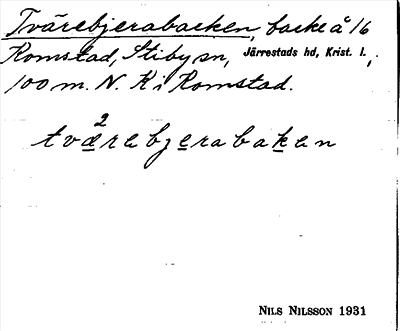 Tvärebjerabacken, backe å 16
Romstad, Stiby sn, Järrestads hd, Krist. l.,
100 m. N. K i Romstad.
2
tværebjerabaken
NILS NILSSON 1931